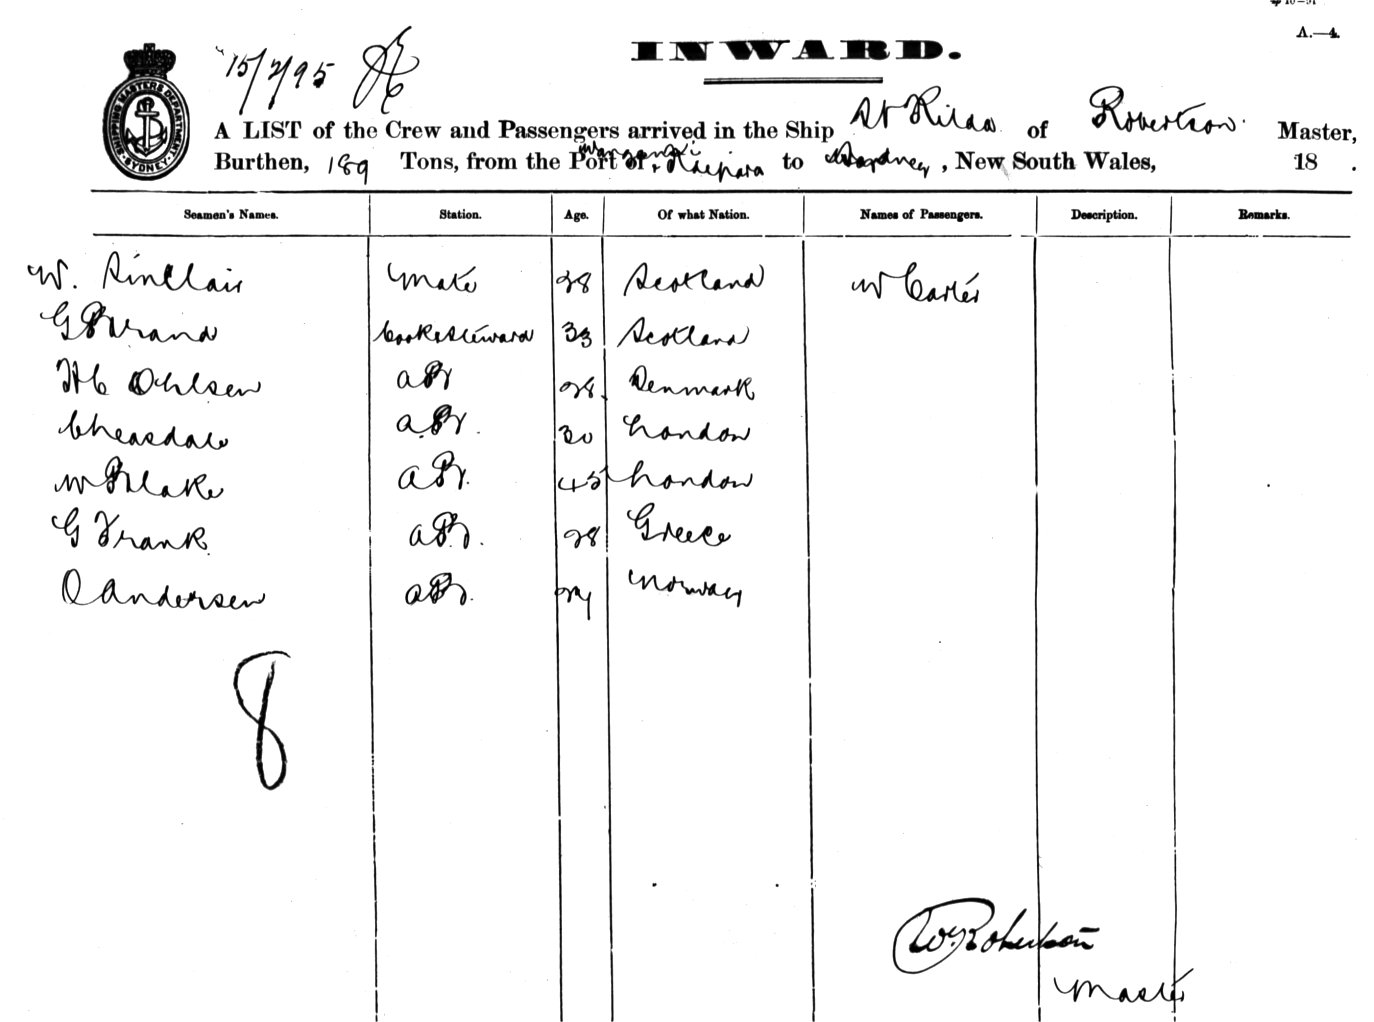 A.—4.
15/2/95
INWARD.
SHIPPING MASTERS DEPARTMENT SYDNEY
A LIST of the Crew and Passengers arrived in the Ship St Kilda of Robertson. Master,
Burthen, 189 Tons, from the Port of Kaipara to Sydney, New South Wales, 18 .
Seamen's Names. Station. Age. Of what Nation. Names of Passengers. Description. Remarks.
W. Sinclair Mate 28 Scotland W Carter
G Brand Cook & Steward 33 Scotland
H C Ohlsen AB 28 Denmark
C Heasdale A.B. 30 London
W Blake AB. 45 London
G Frank AB. 28 Greece
O Andersen AB. Norway
8
Wm Robertson
Master